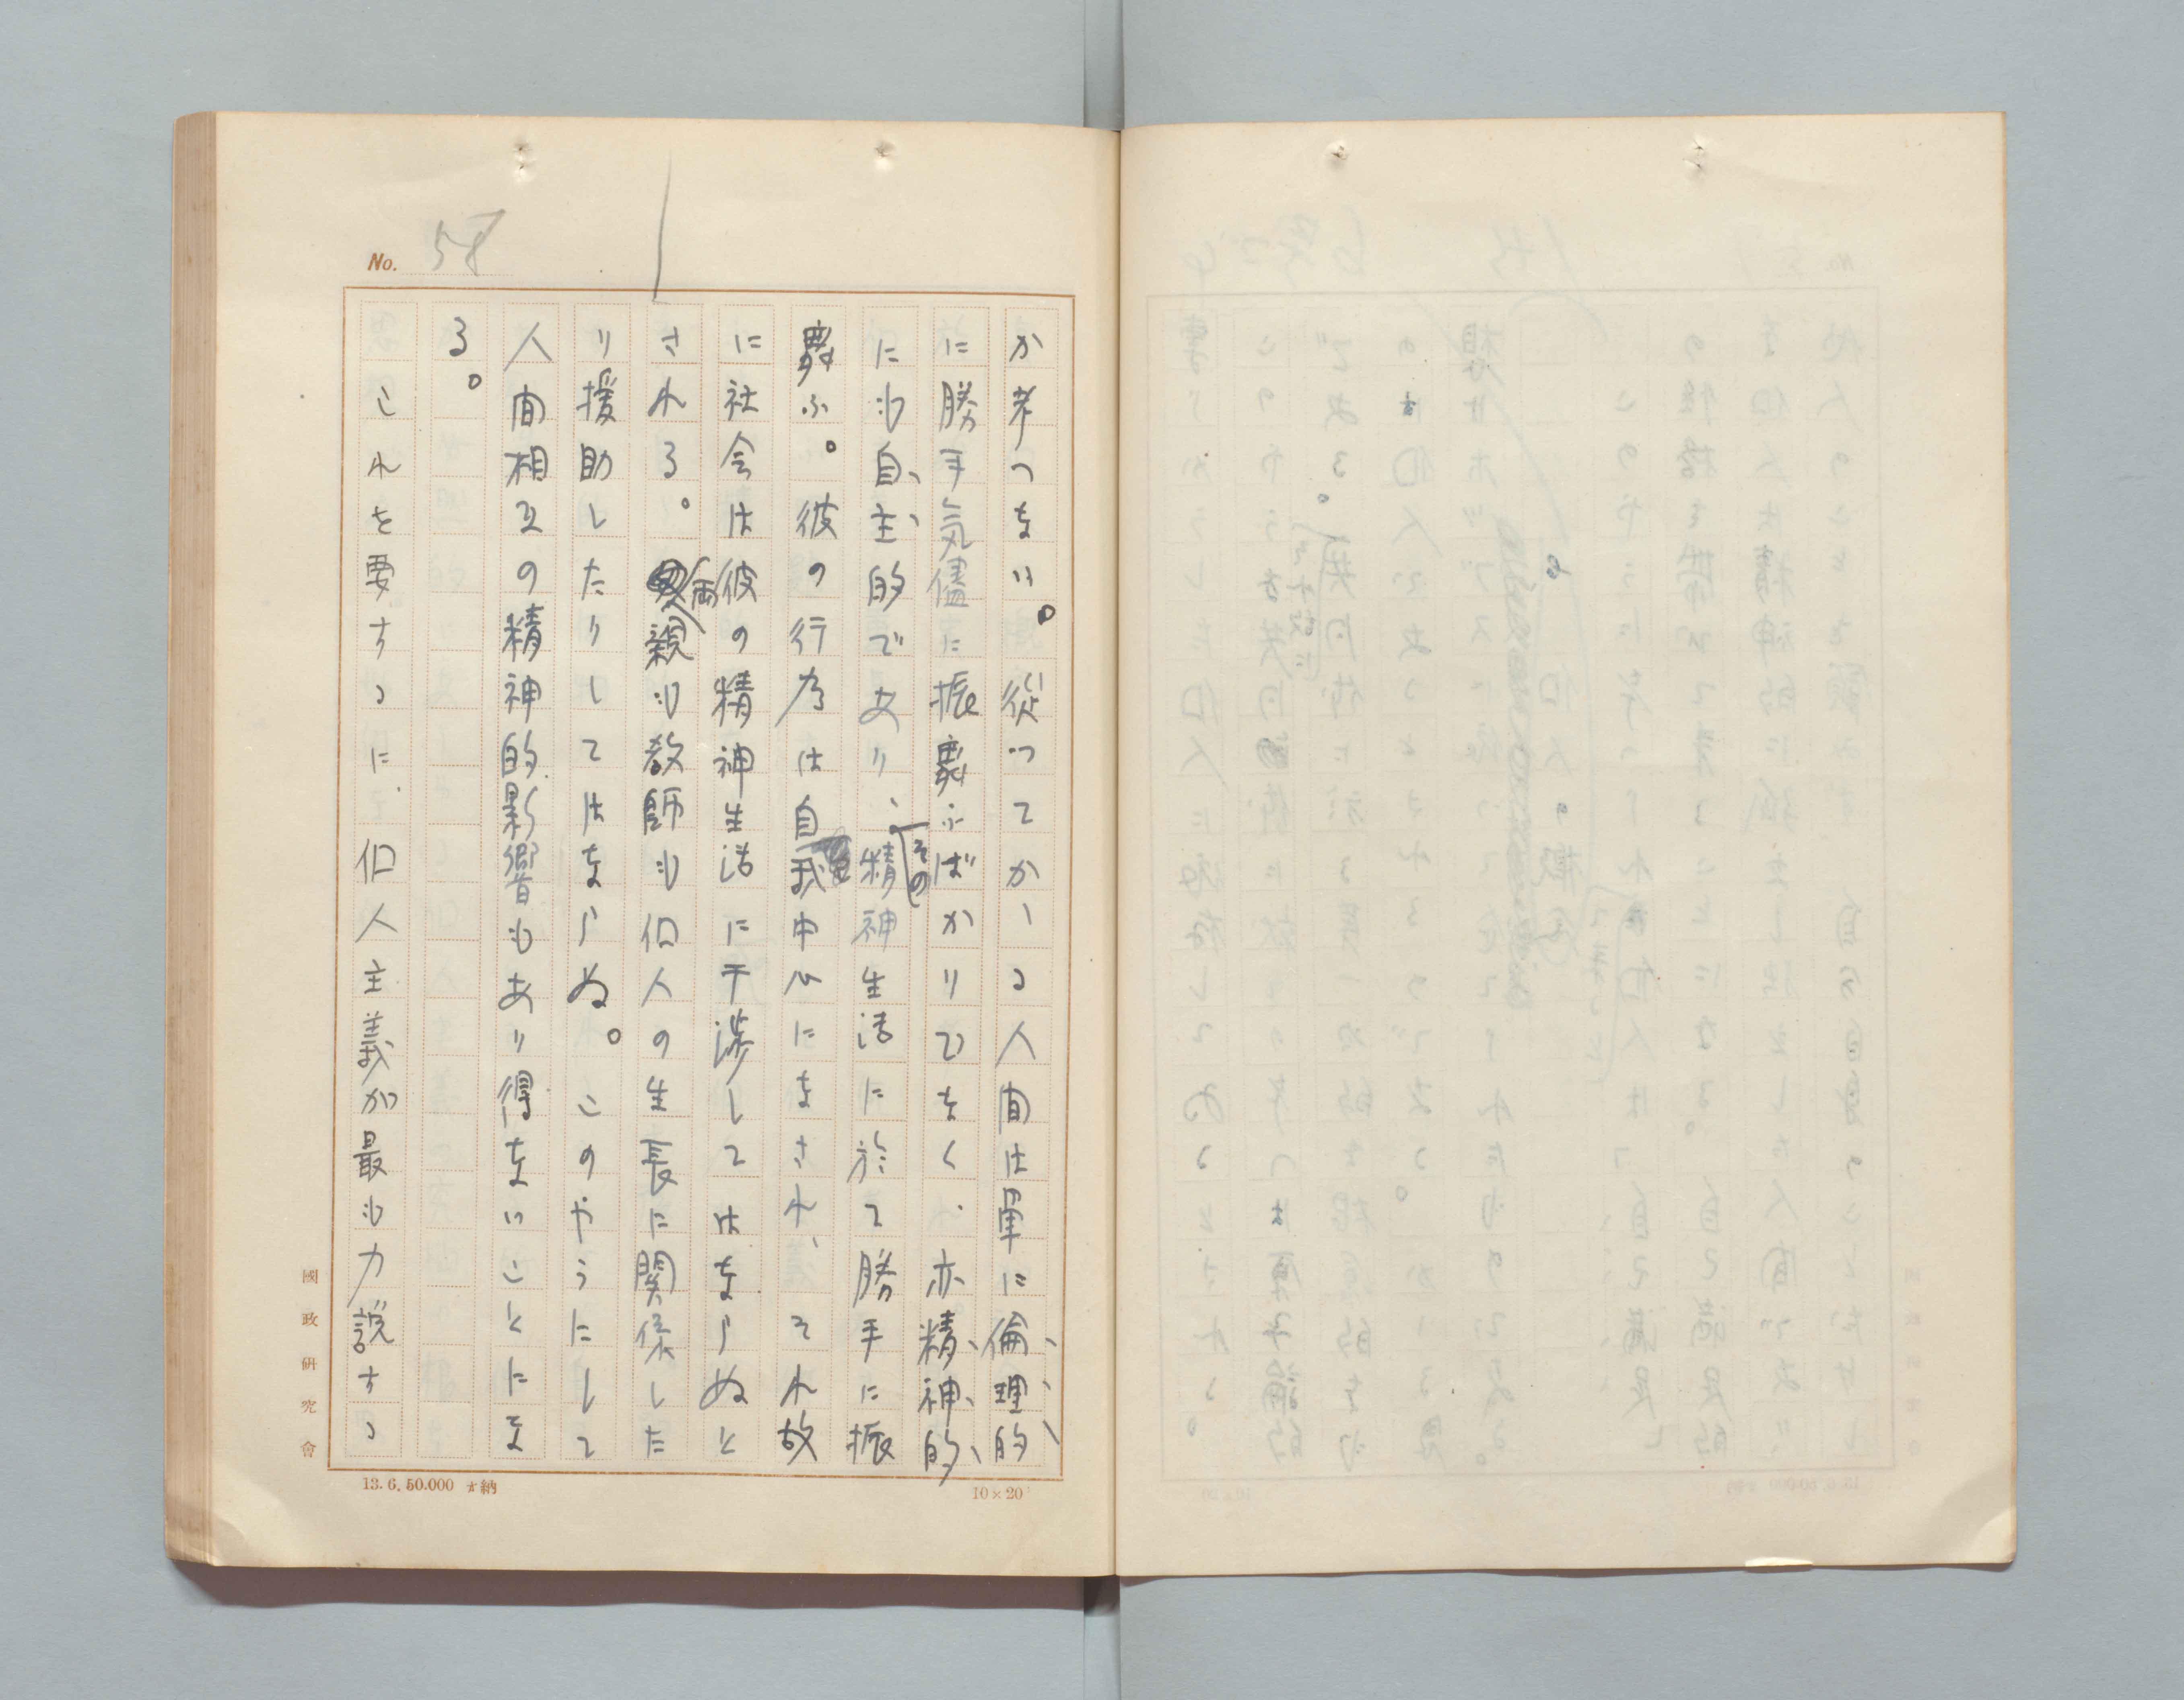 No. 58
か考へない。従つてかゝる人間は単に倫理的
に勝手気儘に振舞ふばかりでなく、亦精神的
にも自主的であり、その精神生活に於て勝手に振
舞ふ。彼の行為は自我中心になされ、それ故
に社会は彼の精神生活に干渉してはならぬと
される。両親も教師も個人の生長に関係した
り援助したりしてはならぬ。このやうにして
人間相互の精神的影響もあり得ないことにな
る。
これを要するに、個人主義が最も力説する
國政研究會
13.6.50.000 納
10×20